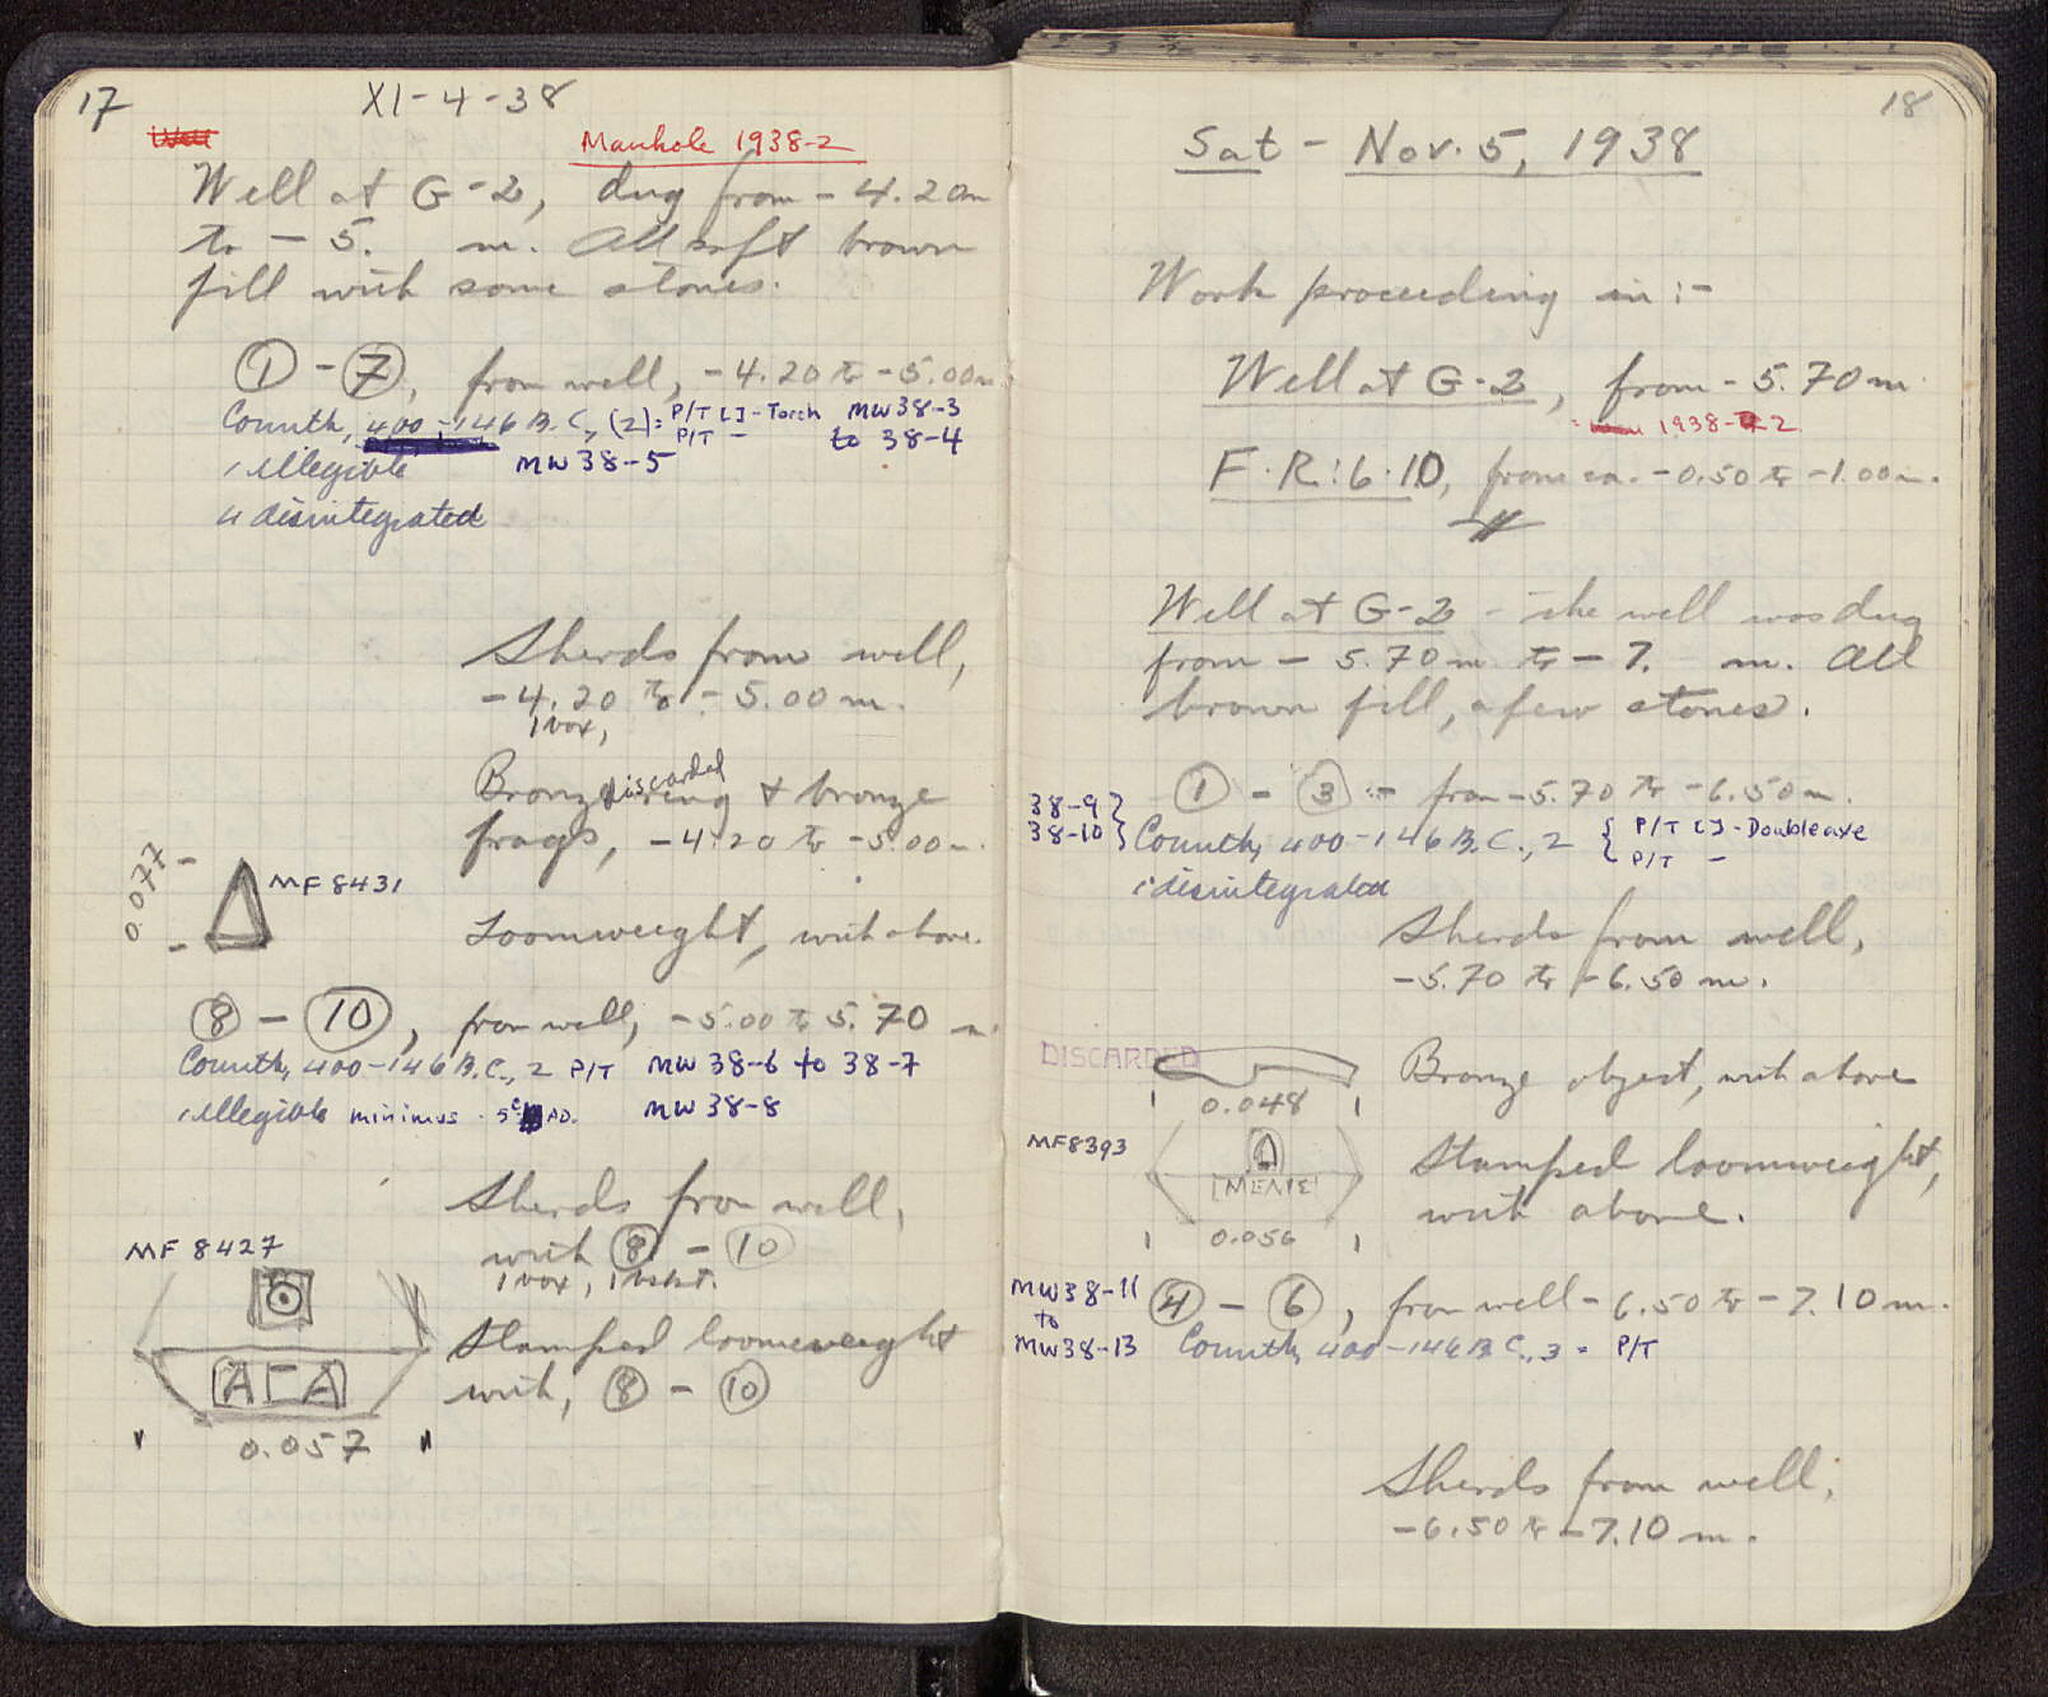 17
XI-4-38
Manhole 1938-2
Well at G-2, dug from -4.20m
to -5. m. All soft brown
fill with some stones.
① - ⑦, from well, -4.20 to -5.00m
Corinth, 400-146 B.C., (2) = P/T [] - Torch MW 38-3
P/T - to 38-4
1 illegible MW 38-5
4 disintegrated
Sherds from well,
-4.20 to -5.00 m.
1 box,
discarded
Bronze ring & bronze
frags, -4.20 to -5.00m.
0.077
MF 8431
Loomweight, with above.
⑧ - ⑩, from well, -5.00 to 5.70 m.
Corinth, 400-146 B.C., 2 P/T MW 38-6 to 38-7
1 illegible minimus · 5c AD. MW 38-8
Sherds from well,
with ⑧ - ⑩
1 box, 1 bskt.
MF 8427
Stamped loomweight
with, ⑧ - ⑩
ΑΓΑ
0.057
18
Sat - Nov. 5, 1938
Work proceeding in :-
Well at G-2, from -5.70m
1938-2
F.R:6.10, from ca. -0.50 to -1.00m.
Well at G-2 - the well was dug
from - 5.70m to -7. m. All
brown fill, a few stones.
① - ③ - from -5.70 to -6.50m.
38-9
38-10
Corinth, 400-146 B.C., 2 { P/T [] - Double axe
P/T -
1 disintegrated
Sherds from well,
-5.70 to -6.50 m.
DISCARDED
Bronze object, with above
0.048
MF8393
Stamped loomweight,
with above.
ΜΕΛΙΣ
0.056
MW38-11
to
MW38-13
④ - ⑥, from well - 6.50 to -7.10m.
Corinth, 400-146 B.C., 3 = P/T
Sherds from well,
-6.50 to -7.10 m.